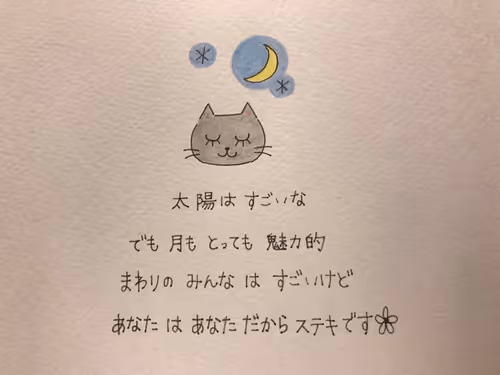 太陽は すごいな
でも 月も とっても 魅力的
まわりの みんな は すごいけど
あなた は あなた だから ステキです